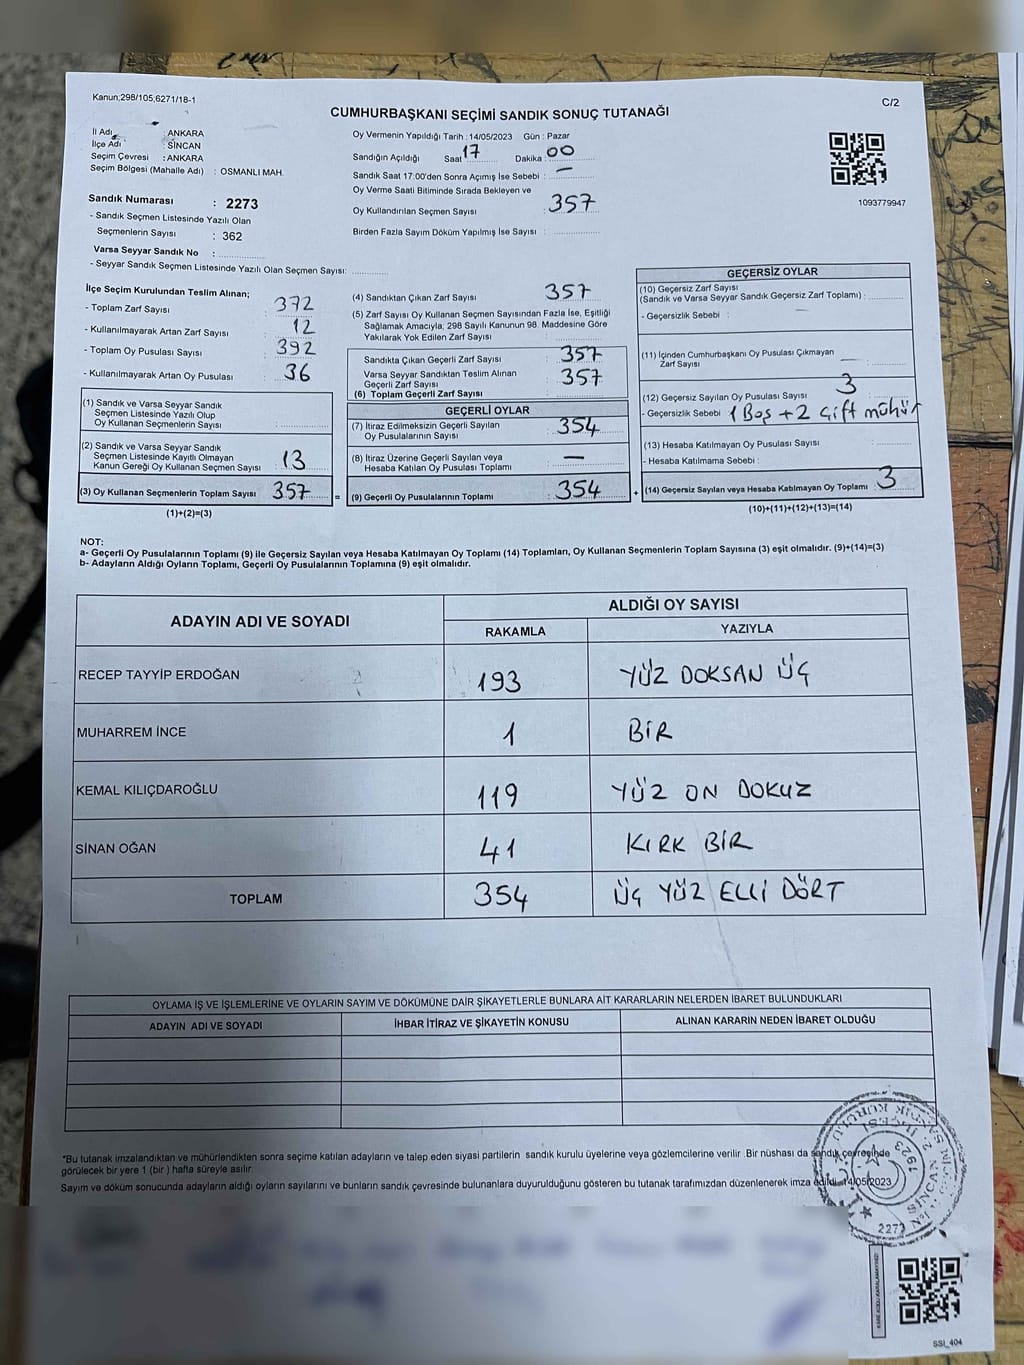 Kanun;298/105,6271/18-1
C/2
CUMHURBAŞKANI SEÇİMİ SANDIK SONUÇ TUTANAĞI
İl Adı : ANKARA
İlçe Adı : SİNCAN
Seçim Çevresi : ANKARA
Seçim Bölgesi (Mahalle Adı) : OSMANLI MAH.
Sandık Numarası : 2273
- Sandık Seçmen Listesinde Yazılı Olan
Seçmenlerin Sayısı : 362
Varsa Seyyar Sandık No :
- Seyyar Sandık Seçmen Listesinde Yazılı Olan Seçmen Sayısı:
Oy Vermenin Yapıldığı Tarih : 14/05/2023 Gün : Pazar
Sandığın Açıldığı Saat 17 Dakika : 00
Sandık Saat 17:00'den Sonra Açımış İse Sebebi : —
Oy Verme Saati Bitiminde Sırada Bekleyen ve
Oy Kullandırılan Seçmen Sayısı : 357
Birden Fazla Sayım Döküm Yapılmış İse Sayısı :
1093779947
İlçe Seçim Kurulundan Teslim Alınan;
- Toplam Zarf Sayısı : 372
- Kullanılmayarak Artan Zarf Sayısı : 12
- Toplam Oy Pusulası Sayısı : 392
- Kullanılmayarak Artan Oy Pusulası : 36
(1) Sandık ve Varsa Seyyar Sandık
Seçmen Listesinde Yazılı Olup
Oy Kullanan Seçmenlerin Sayısı :
(2) Sandık ve Varsa Seyyar Sandık
Seçmen Listesinde Kayıtlı Olmayan
Kanun Gereği Oy Kullanan Seçmen Sayısı : 13
(3) Oy Kullanan Seçmenlerin Toplam Sayısı : 357
(1)+(2)=(3)
=
(4) Sandıktan Çıkan Zarf Sayısı : 357
(5) Zarf Sayısı Oy Kullanan Seçmen Sayısından Fazla İse, Eşitliği
Sağlamak Amacıyla; 298 Sayılı Kanunun 98. Maddesine Göre
Yakılarak Yok Edilen Zarf Sayısı :
Sandıkta Çıkan Geçerli Zarf Sayısı : 357
Varsa Seyyar Sandıktan Teslim Alınan
Geçerli Zarf Sayısı : 357
(6) Toplam Geçerli Zarf Sayısı :
GEÇERLİ OYLAR
(7) İtiraz Edilmeksizin Geçerli Sayılan
Oy Pusulalarının Sayısı : 354
(8) İtiraz Üzerine Geçerli Sayılan veya
Hesaba Katılan Oy Pusulası Toplamı : —
(9) Geçerli Oy Pusulalarının Toplamı : 354
+
GEÇERSİZ OYLAR
(10) Geçersiz Zarf Sayısı
(Sandık ve Varsa Seyyar Sandık Geçersiz Zarf Toplamı) :
- Geçersizlik Sebebi : —
(11) İçinden Cumhurbaşkanı Oy Pusulası Çıkmayan
Zarf Sayısı : —
(12) Geçersiz Sayılan Oy Pusulası Sayısı : 3
- Geçersizlik Sebebi : 1 Boş + 2 çift mühür
(13) Hesaba Katılmayan Oy Pusulası Sayısı :
- Hesaba Katılmama Sebebi :
(14) Geçersiz Sayılan veya Hesaba Katılmayan Oy Toplamı : 3
(10)+(11)+(12)+(13)=(14)
NOT:
a- Geçerli Oy Pusulalarının Toplamı (9) ile Geçersiz Sayılan veya Hesaba Katılmayan Oy Toplamı (14) Toplamları, Oy Kullanan Seçmenlerin Toplam Sayısına (3) eşit olmalıdır. (9)+(14)=(3)
b- Adayların Aldığı Oyların Toplamı, Geçerli Oy Pusulalarının Toplamına (9) eşit olmalıdır.
ADAYIN ADI VE SOYADI
ALDIĞI OY SAYISI
RAKAMLA YAZIYLA
RECEP TAYYİP ERDOĞAN 193 YÜZ DOKSAN ÜÇ
MUHARREM İNCE 1 BİR
KEMAL KILIÇDAROĞLU 119 YÜZ ON DOKUZ
SİNAN OĞAN 41 KIRK BİR
TOPLAM 354 ÜÇ YÜZ ELLİ DÖRT
OYLAMA İŞ VE İŞLEMLERİNE VE OYLARIN SAYIM VE DÖKÜMÜNE DAİR ŞİKAYETLERLE BUNLARA AİT KARARLARIN NELERDEN İBARET BULUNDUKLARI
ADAYIN ADI VE SOYADI İHBAR İTİRAZ VE ŞİKAYETİN KONUSU ALINAN KARARIN NEDEN İBARET OLDUĞU
*Bu tutanak imzalandıktan ve mühürlendikten sonra seçime katılan adayların ve talep eden siyasi partilerin sandık kurulu üyelerine veya gözlemcilerine verilir. Bir nüshası da sandık çevresinde
görülecek bir yere 1 (bir ) hafta süreyle asılır.
Sayım ve döküm sonucunda adayların aldığı oyların sayılarını ve bunların sandık çevresinde bulunanlara duyurulduğunu gösteren bu tutanak tarafımızdan düzenlenerek imza edildi. 14/05/2023
1923
SİNCAN
2273
SSİ_404